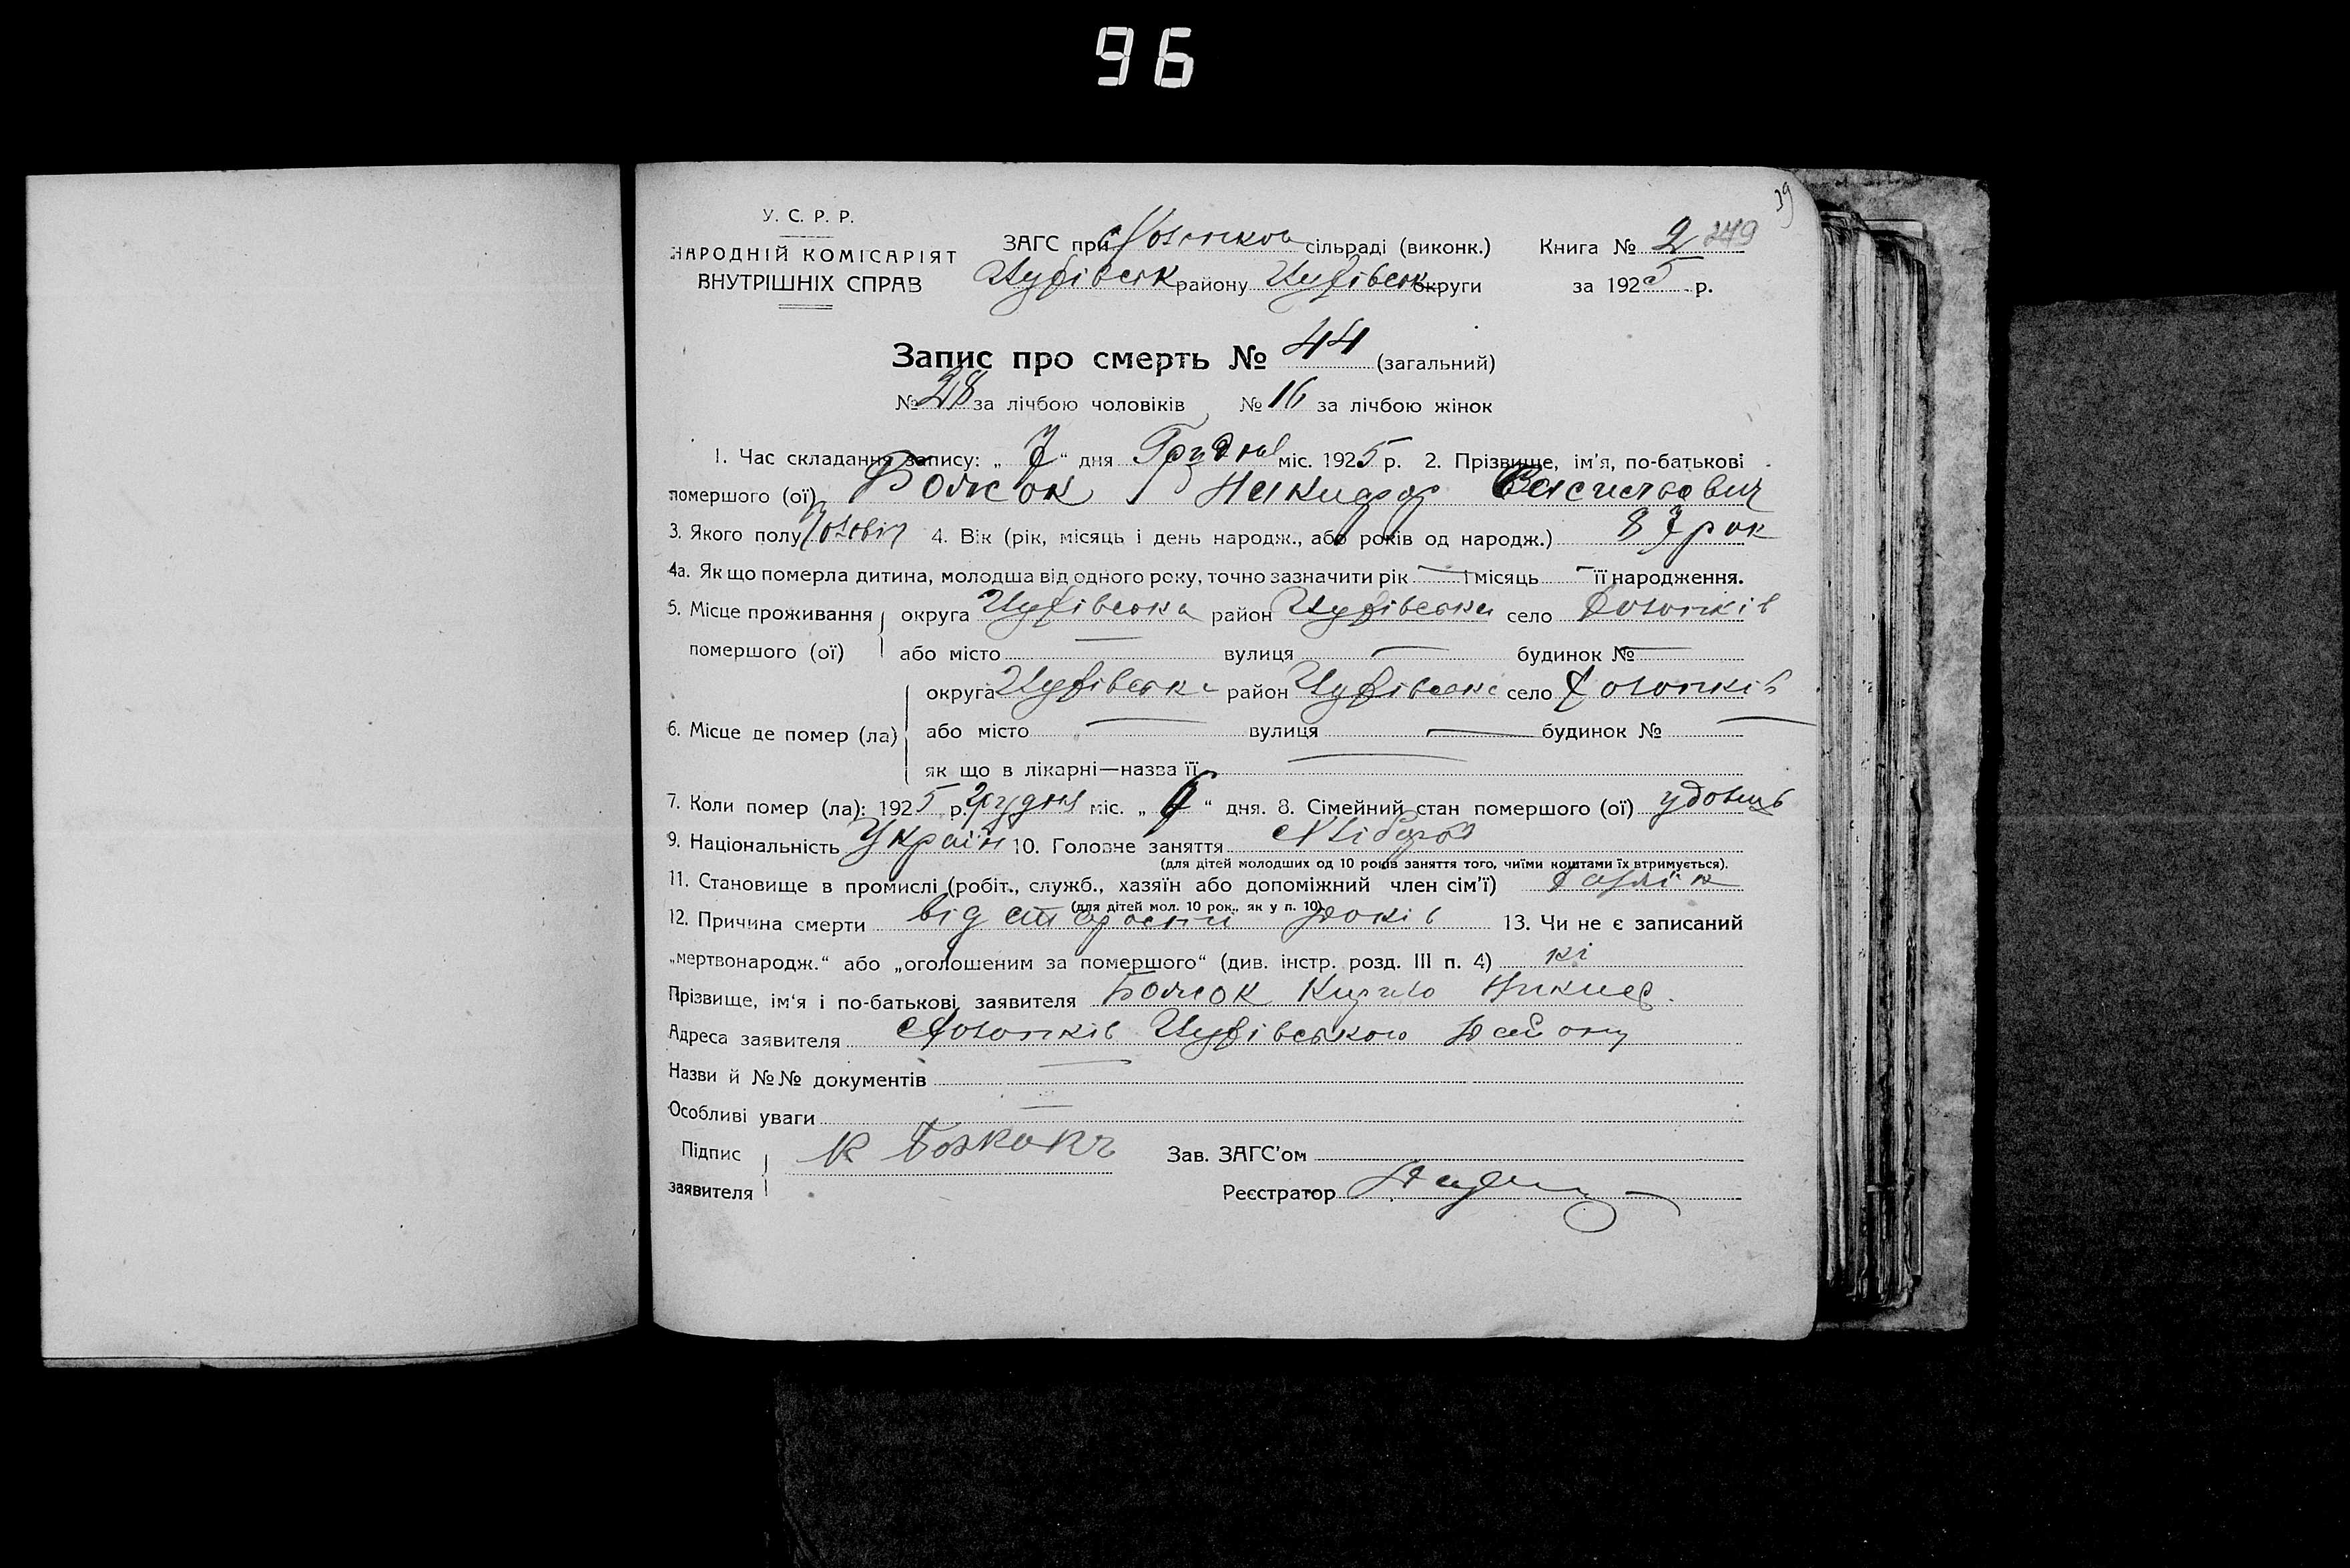 96
39
У. С. Р. Р.
НАРОДНІЙ КОМІСАРІЯТ
ВНУТРІШНІХ СПРАВ
ЗАГС при сільраді (виконк.)
району округи
Книга № 2 249
за 1925 р.
Запис про смерть № 44 (загальний)
№ 28 за лічбою чоловіків № 16 за лічбою жінок
1. Час складання запису: „ 7 “ дня Грудня міс. 1925 р. 2. Прізвище, ім'я, по-батькові
помершого (ої) Божок Никифор Васильович
3. Якого полу Чоловіч 4. Вік (рік, місяць і день народж., або років од народж.) 87 рок
4а. Як що померла дитина, молодша від одного року, точно зазначити рік — і місяць — її народження.
5. Місце проживання округа район село
помершого (ої) або місто — вулиця — будинок № —
округа район село
6. Місце де помер (ла) або місто — вулиця — будинок № —
як що в лікарні—назва її —
7. Коли помер (ла): 1925 р. Грудня міс. „ “ дня. 8. Сімейний стан помершого (ої) удовець
9. Національність Україн 10. Головне заняття Хлібороб
(для дітей молодших од 10 років заняття того, чиїми коштами їх втримується).
11. Становище в промислі (робіт., служб., хазяїн або допоміжний член сім'ї)
(для дітей мол. 10 рок., як у п. 10)
12. Причина смерти від старости років 13. Чи не є записаний
„мертвонародж.“ або „оголошеним за помершого“ (див. інстр. розд. III п. 4) ні
Прізвище, ім'я і по-батькові заявителя Божок Кирило Никиф.
Адреса заявителя району
Назви й №№ документів —
Особливі уваги —
Підпис К Божокъ Зав. ЗАГС'ом
заявителя Реєстратор